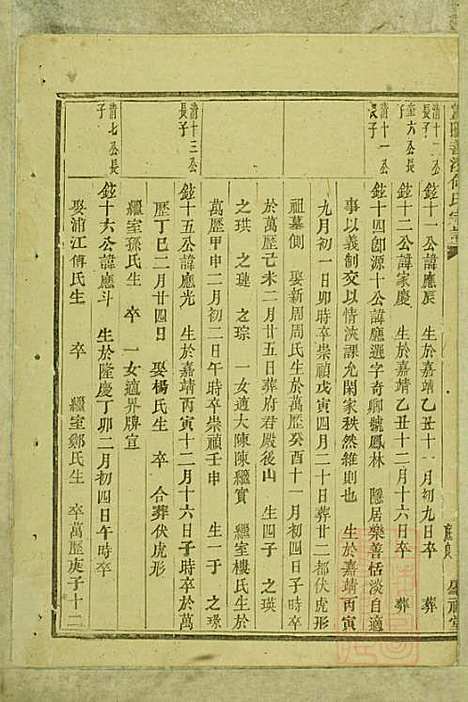 清十二公長子
鉉十一公諱應辰 生於嘉靖乙丑十一月初九日卒 葬
清六公長子
鉉十二公諱家慶 生於嘉靖乙丑十二月十六日卒 葬
清十一公長子
鉉十四郎源十公諱應選字奇卿號鳳林 隱居樂善恬淡自適
事以義制交以情浹課允閑家秩然維則也 生於嘉靖丙寅
九月初一日卯時卒崇禎戊寅四月二十日葬廿二都伏虎形
祖墓側 娶新周周氏生於萬歷癸酉十一月初四日子時卒
於萬歷己未二月廿五日葬府君殿後山 生四子 之瑛
之珙 之璉 之琮 一女適大陳陳繼實 繼室樓氏生於
萬歷甲申二月初二日午時卒崇禎壬申 生一子 之璟
清十三公長子
鉉十五公諱應光 生於嘉靖丙寅十二月十六日子時卒於萬
歷丁巳二月廿四日 娶楊氏生 卒 合葬伏虎形
繼室孫氏生 卒 一女適界牌宣
清七公長子
鉉十六公諱應斗 生於隆慶丁卯二月初四日午時卒
娶浦江傅氏生 卒 繼室鄭氏生 卒萬歷庚子十二